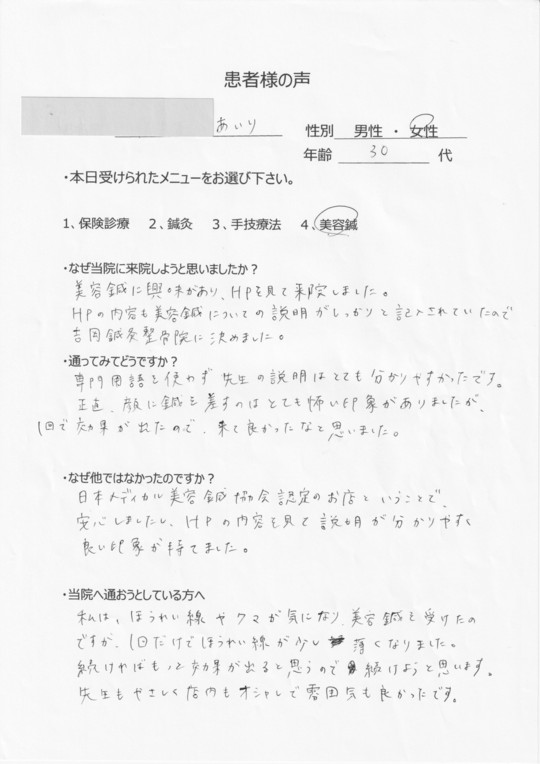 患者様の声
あいり
性別 男性 ・ 女性
年齢 30 代
・本日受けられたメニューをお選び下さい。
1、保険診療 2、鍼灸 3、手技療法 4、美容鍼
・なぜ当院に来院しようと思いましたか?
美容鍼に興味があり、HPを見て来院しました。
HPの内容も美容鍼についての説明がしっかりと記入されていたので
吉岡鍼灸整骨院に決めました。
・通ってみてどうですか?
専門用語を使わず先生の説明はとても分かりやすかったです。
正直、顔に鍼を差すのはとても怖い印象がありましたが、
1回で効果が出たので、来て良かったなと思いました。
・なぜ他ではなかったのですか?
日本メディカル美容鍼協会認定のお店ということで、
安心しましたし、HPの内容を見て説明が分かりやすく
良い印象が持てました。
・当院へ通おうとしている方へ
私は、ほうれい線やクマが気になり、美容鍼を受けたの
ですが、1回だけでほうれい線が少し薄くなりました。
続ければもっと効果が出ると思うので続けようと思います。
先生もやさしく店内もオシャレで雰囲気も良かったです。